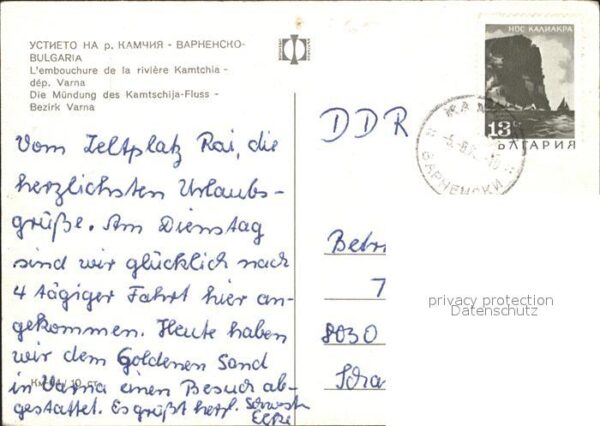 УСТИЕТО НА р. КАМЧИЯ - ВАРНЕНСКО-
BULGARIA
L'embouchure de la rivière Kamtchia -
dép. Varna
Die Mündung des Kamtschija-Fluss -
Bezirk Varna
Vom Zeltplatz Rai, die
herzlichsten Urlaubs-
grüße. Am Dienstag
sind wir glücklich nach
4 tägiger Fahrt hier an-
gekommen. Heute haben
wir dem Goldenen Sand
in Varna einen Besuch ab-
gestattet. Es grüßt herzl.
НОС КАЛИАКРА
13
БЪЛГАРИЯ
ВАРНЕНСКИ
DDR
Betri
7
8030
privacy protection
Datenschutz